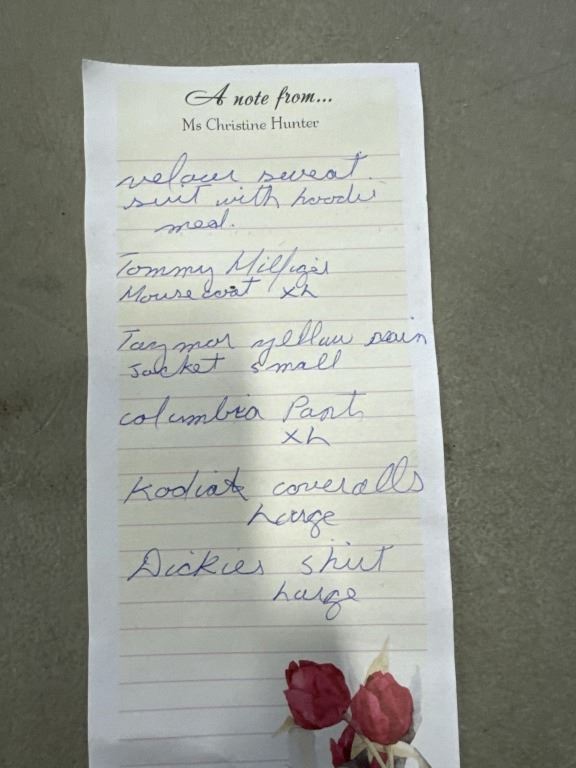 A note from...
Ms Christine Hunter
velour sweat
suit with hoodie
med.
Tommy Hilfiger
Housecoat XL
Taymor yellow rain
Jacket small
columbia Pants
XL
Kodiak coveralls
Large
Dickies shirt
Large